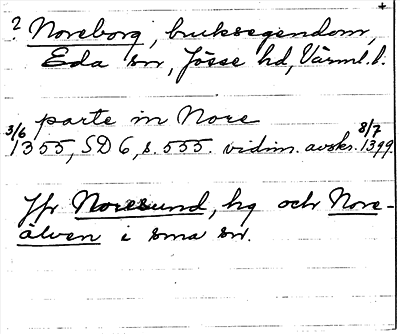 ? Noreborg, bruksegendom,
Eda sn, Jösse hd, Värml. l.
parte in Nore
3/6 1355, SD 6, s. 555. vidim. avskr. 8/7 1399
Jfr Noresund, hg och Nore-
älven i sma sn.